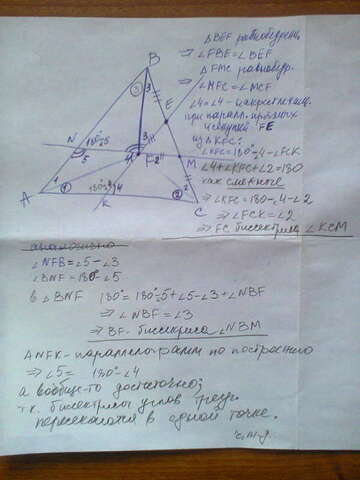 B
△BEF равнобедрен.
⇒ ∠FBE = ∠BEF
△FMC равнобедр.
⇒ ∠MFC = ∠MCF
E
∠4 = ∠4 - накрест лежащ.
при паралл. прямых
и секущей FE
N 180°-5
5
3
3
из △KFC:
∠KFC = 180° - ∠4 - ∠FCK
∠4 + ∠KFC + ∠2 = 180
как смежные
⇒ ∠KFC = 180 - ∠4 - ∠2
⇒ ∠FCK = ∠2
⇒ FC биссектриса ∠KCM
F
M
A
1
180°-4
4
K
2
C
аналогично
∠NFB = ∠5 - ∠3
∠BNF = 180° - ∠5
в ∠BNF 180° = 180° - ∠5 + ∠5 - ∠3 + ∠NBF
⇒ ∠NBF = ∠3
⇒ BF - биссектриса ∠NBM
ANFK - параллелограмм по построению
⇒ ∠5 = 180° - ∠4
а вообще-то достаточно,
т.к. биссектрисы углов треуг.
пересекаются в одной точке.
ч.т.д.